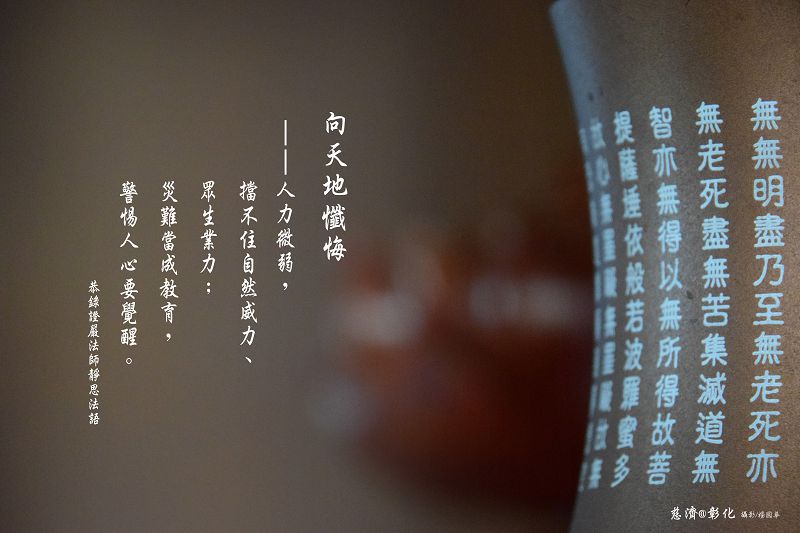 向天地懺悔
——人力微弱，
擋不住自然威力、
眾生業力；
災難當成教育，
警惕人心要覺醒。
恭錄證嚴法師靜思法語
無無明盡乃至無老死亦
無老死盡無苦集滅道無
智亦無得以無所得故菩
提薩埵依般若波羅蜜多
故心無罣礙無罣礙故無
慈濟@彰化